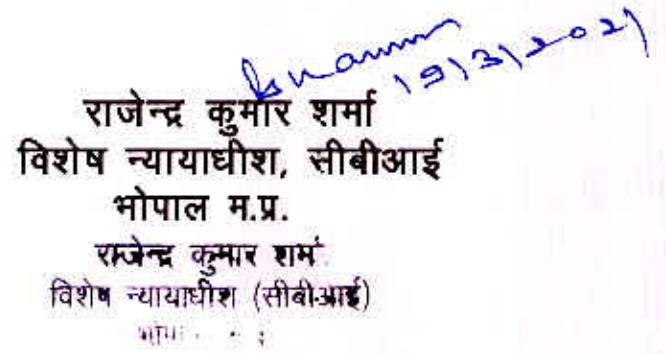 19/3/2021
राजेन्द्र कुमार शर्मा
विशेष न्यायाधीश, सीबीआई
भोपाल म.प्र.
राजेन्द्र कुमार शर्मा
विशेष न्यायाधीश (सीबीआई)